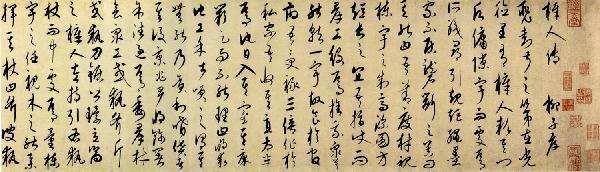 梓人傳 柳子厚
裴封叔之第在光
德里有梓人款其門
願傭隟宇而處焉
所職尋引規矩繩墨
家不居礱斲之器問
其能曰吾善度材視
棟宇之制高深圓方
短長之宜吾指使而
群工役焉捨我眾莫
能就一宇故食於官
府吾受祿三倍作於
私家吾收其直太半
焉他日入其室其床
闕足而不能理曰將求
他工余甚笑之謂其無
能而貪祿嗜貨者
其後京兆尹將飾官
署余往過焉委群材
會眾工或執斧斤
或執刀鋸皆環立嚮
之梓人左持引右執
杖而中處焉量棟
宇之任視木之能舉
揮其杖曰斧彼執